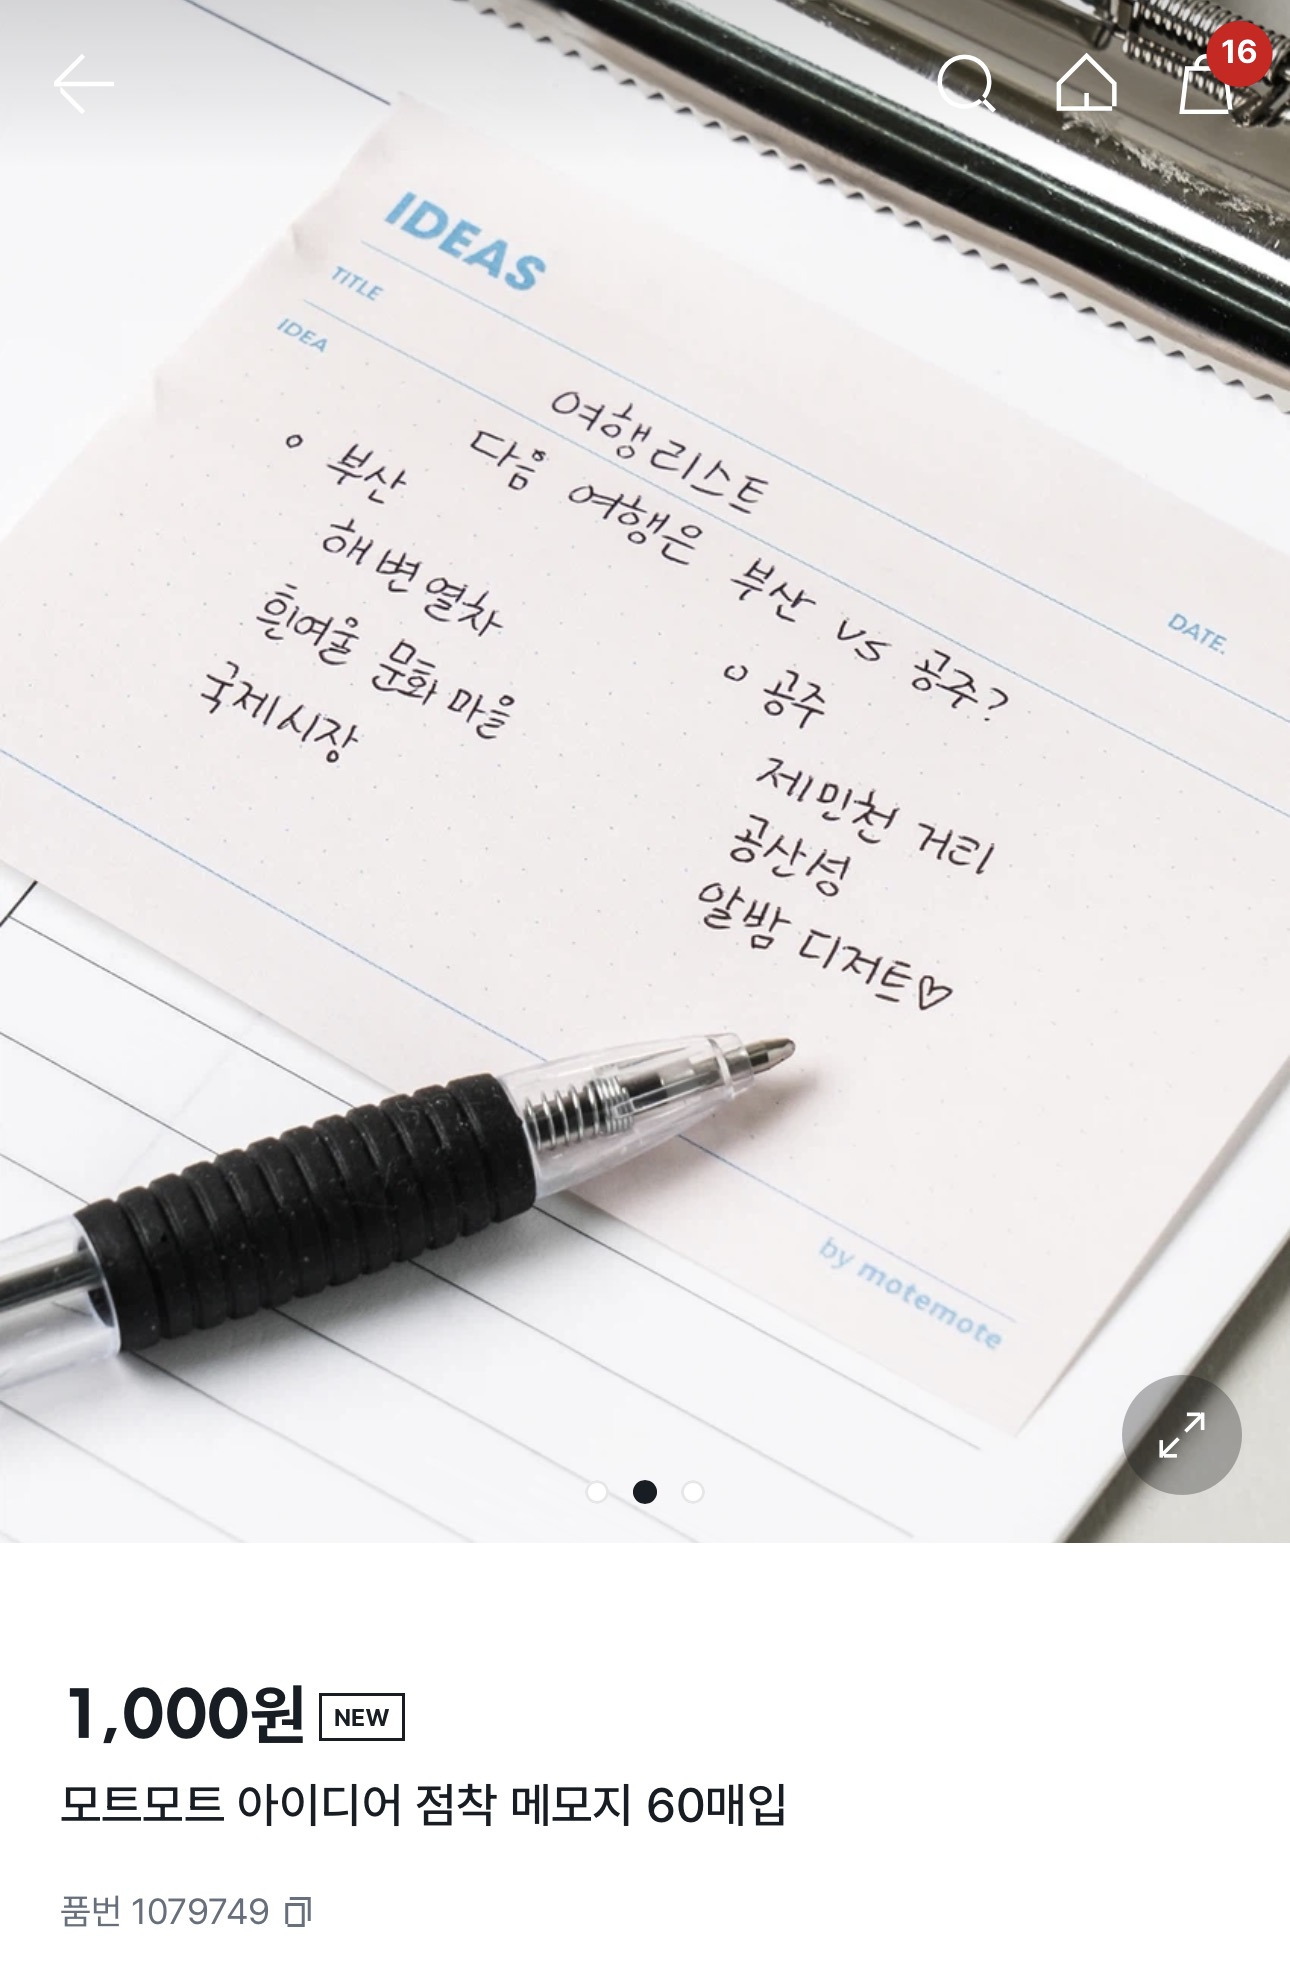 16
IDEAS
TITLE
IDEA
DATE.
여행리스트
다음 여행은 부산 vs 공주?
부산
해변열차
흰여울 문화 마을
국제시장
공주
제민천 거리
공산성
알밤 디저트♡
by motemote
1,000원 NEW
모트모트 아이디어 점착 메모지 60매입
품번 1079749